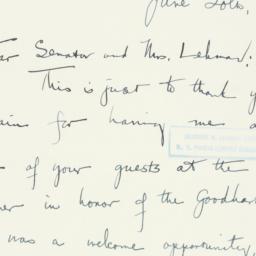 June 20th,
Senator and Mrs. Lehman:
This is just to thank
for having me
of your guests at the
in honor of the Goodhart
was a welcome opportunity,